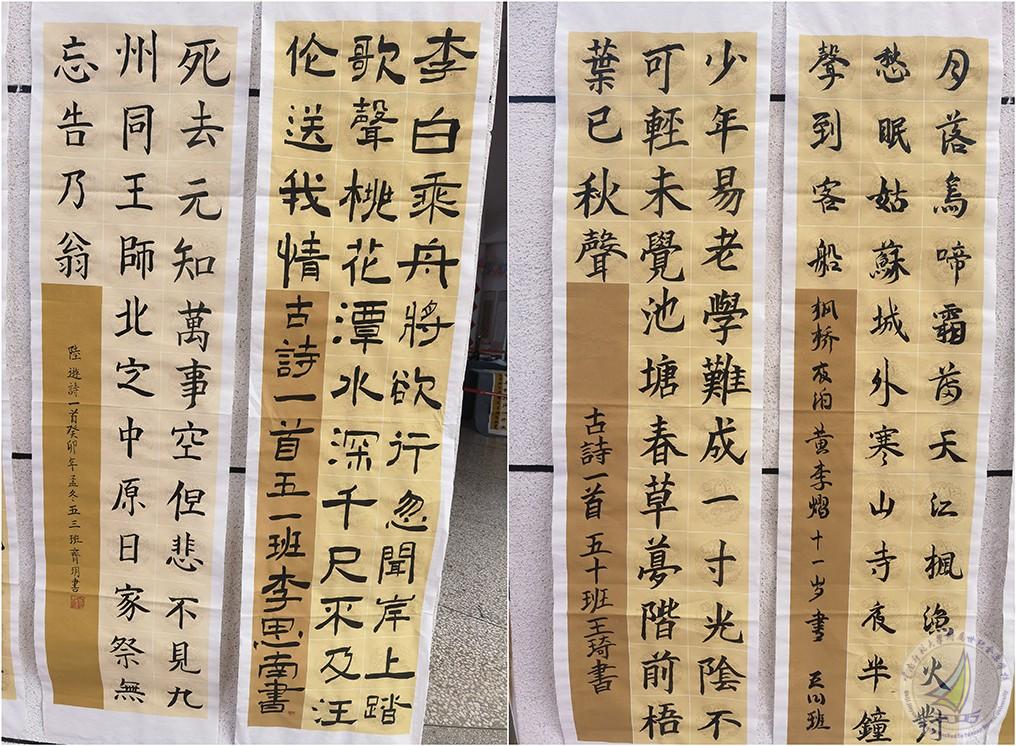 死去元知萬事空但悲不見九
州同王師北定中原日家祭無
忘告乃翁
陸遊詩一首癸卯年孟冬五三班齊玥書
李白乘舟將欲行忽聞岸上踏
歌聲桃花潭水深千尺不及汪
伦送我情
古詩一首五一班李思南書
少年易老學難成一寸光陰不
可輕未覺池塘春草夢階前梧
葉已秋聲
古詩一首 五十班王琦書
月落烏啼霜滿天江楓漁火對
愁眠姑蘇城外寒山寺夜半鐘
聲到客船
枫桥夜泊 黄李熠 十一岁書 班